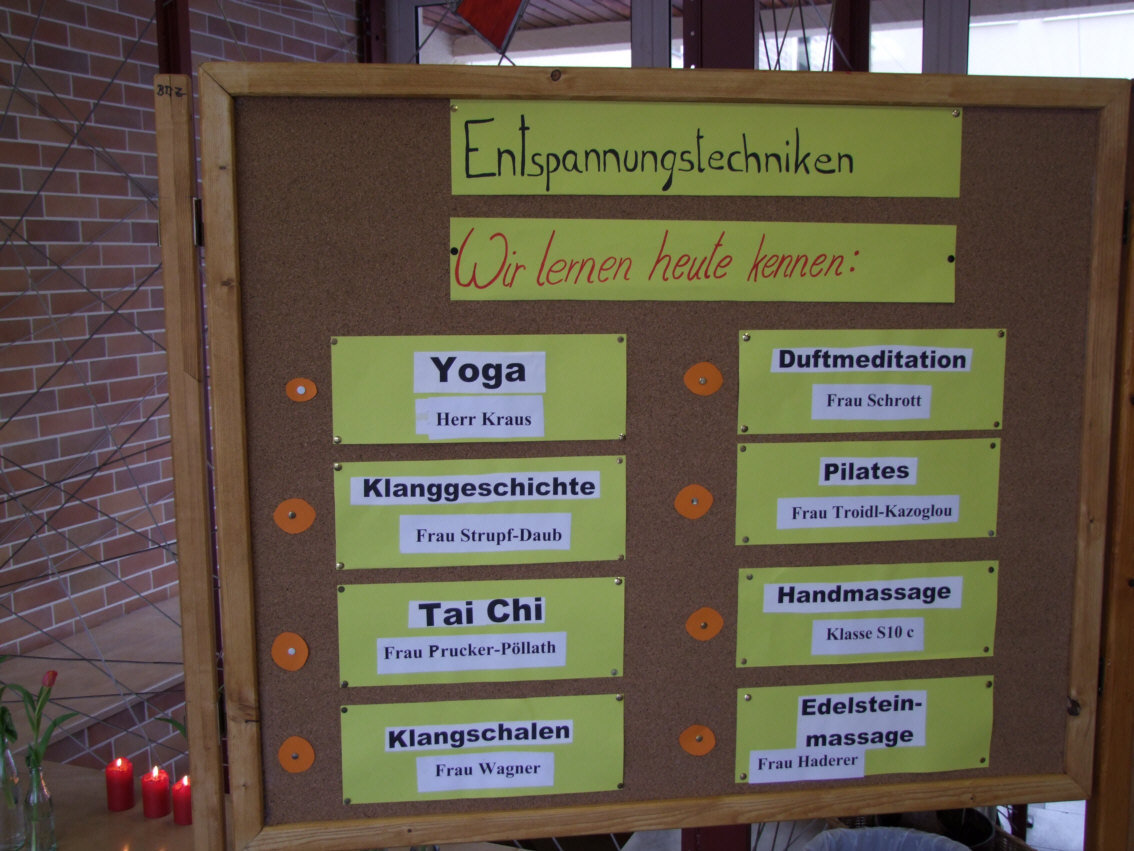 BTZ
Entspannungstechniken
Wir lernen heute kennen:
Yoga
Herr Kraus
Klanggeschichte
Frau Strupf-Daub
Tai Chi
Frau Prucker-Pöllath
Klangschalen
Frau Wagner
Duftmeditation
Frau Schrott
Pilates
Frau Troidl-Kazoglou
Handmassage
Klasse S10 c
Edelstein-
massage
Frau Haderer